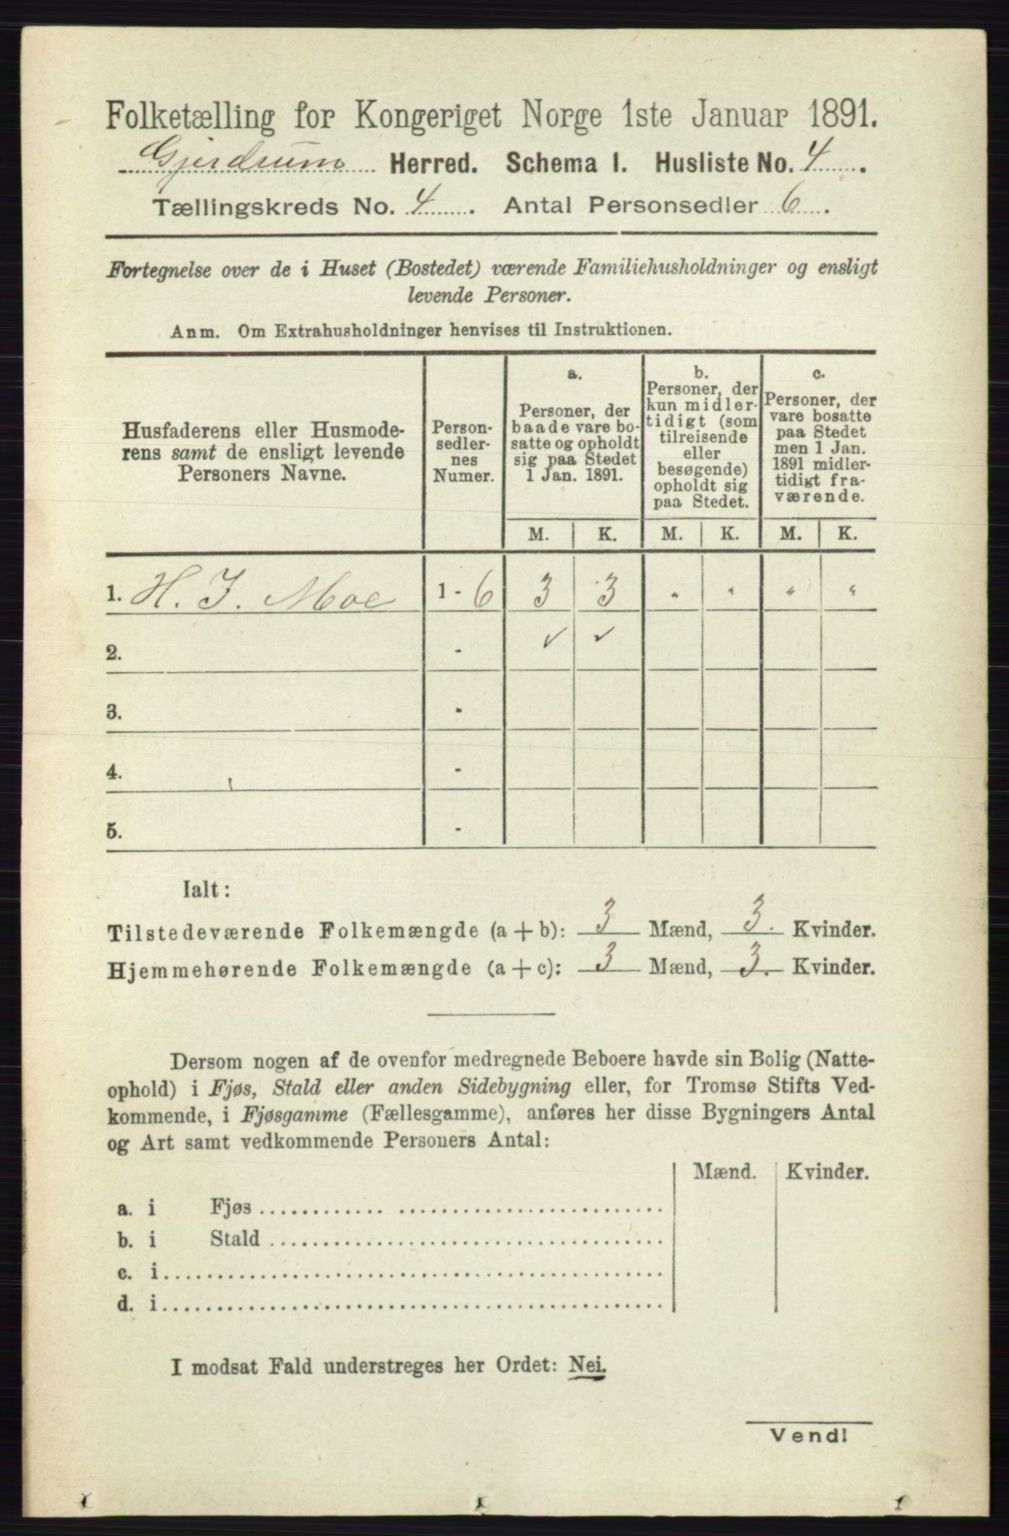 Folketælling for Kongeriget Norge 1ste Januar 1891.
Gjerdrum Herred. Schema I. Husliste No. 4.
Tællingskreds No. 4. Antal Personsedler 6.
Fortegnelse over de i Huset (Bostedet) værende Familiehusholdninger og ensligt
levende Personer.
Anm. Om Extrahusholdninger henvises til Instruktionen.
Husfaderens eller Husmode-
rens samt de ensligt levende
Personers Navne.
Person-
sedler-
nes
Numer.
a.
Personer, der
baade vare bo-
satte og opholdt
sig paa Stedet
1 Jan. 1891.
b.
Personer, der
kun midler-
tidigt (som
tilreisende
eller
besøgende)
opholdt sig
paa Stedet.
c.
Personer, der
vare bosatte
paa Stedet
men 1 Jan.
1891 midler-
tidigt fra-
værende.
M. K. M. K. M. K.
1. H. J. Moe 1 - 6 3 3 " " " "
2. - ✓ ✓
3. -
4. -
5. -
Ialt:
Tilstedeværende Folkemængde (a + b): 3 Mænd, 3. Kvinder.
Hjemmehørende Folkemængde (a + c): 3 Mænd, 3. Kvinder.
Dersom nogen af de ovenfor medregnede Beboere havde sin Bolig (Natte-
ophold) i Fjøs, Stald eller anden Sidebygning eller, for Tromsø Stifts Ved-
kommende, i Fjøsgamme (Fællesgamme), anføres her disse Bygningers Antal
og Art samt vedkommende Personers Antal:
Mænd. Kvinder.
a. i Fjøs
b. i Stald
c. i
d. i
I modsat Fald understreges her Ordet: Nei.
Vend!